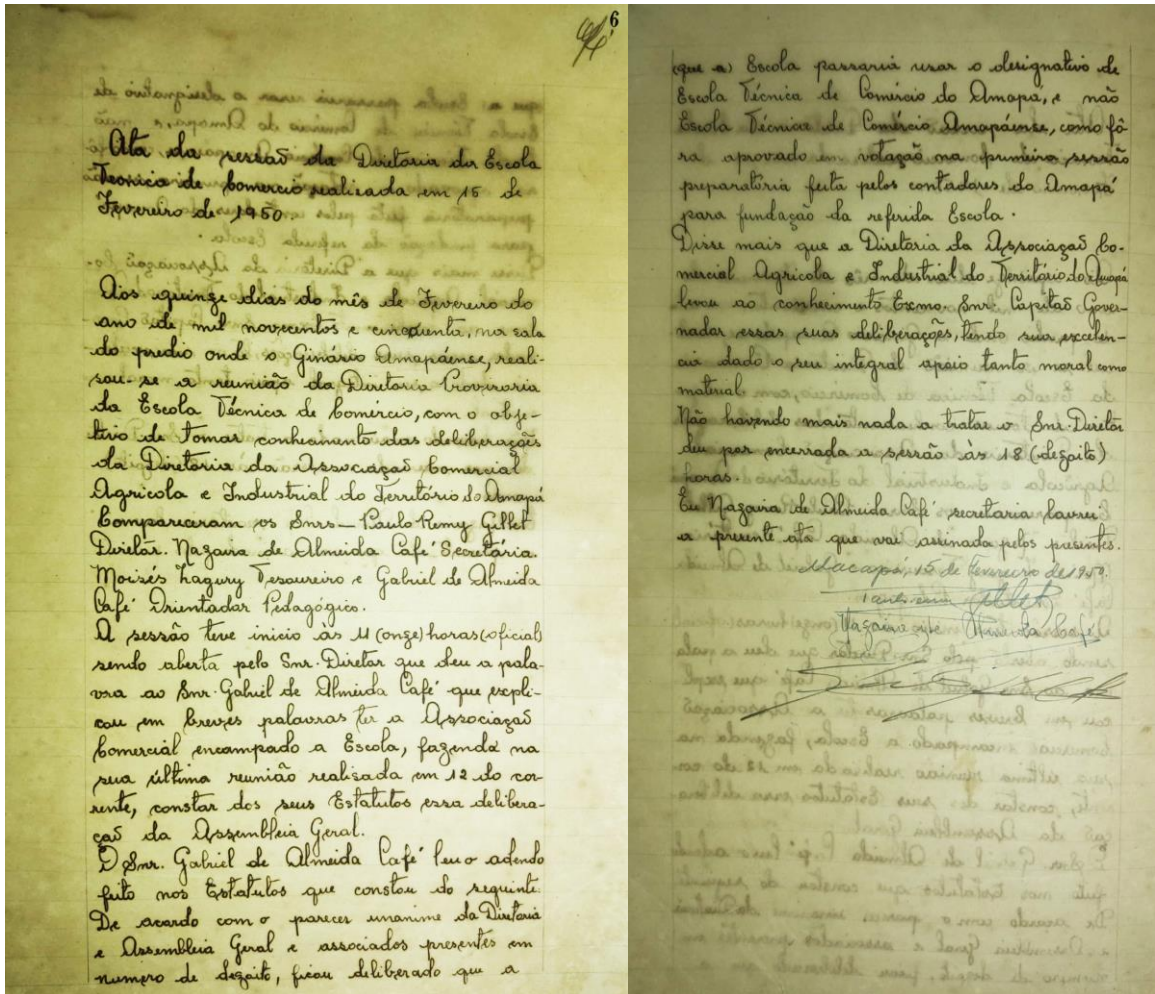 6
Ata da sessaõ da Diretoria da Escola
Tecnica de Comercio realizada em 15 de
Fevereiro de 1950.
Aos quinze dias do mês de Fevereiro do
ano de mil novecentos e cinquenta, na sala
do predio onde o Ginário Amapáense, reali-
sou-se a reunião da Diretoria Proviroria
da Escola Técnica de Comércio, com o obje-
tivo de tomar conhecimento das deliberações
da Diretoria da Associaçaõ Comercial
Agricola e Industrial do Território do Amapá
Compareceram os Snrs — Paulo Remy Gillet
Diretor. Nazaira de Almeida Café Secretária.
Moisés Zagury Tesoureiro e Gabriel de Almeida
Café Orientador Pedagógico.
A sessão teve inicio às 11 (onze) horas (oficial)
sendo aberta pelo Snr. Diretor que deu a pala-
vra ao Snr. Gabriel de Almeida Café que expli-
cou em breves palavras ter a Associaçaõ
Comercial encampado a Escola, fazendo na
sua última reunião realisada em 12 do cor-
rente, constar dos seus Estatutos essa delibera-
çaõ da Assembleia Geral.
O Snr. Gabriel de Almeida Café leu o adendo
feito nos Estatutos que constou do seguinte:
De acordo com o parecer unanime da Diretoria
e Assembleia Geral e associados presentes em
numero de dezoito, ficou deliberado que a
(que a) Escola passaria usar o designativo de
Escola Técnica de Comércio do Amapá, e não
Escola Técnica de Comércio Amapáense, como fô-
ra aprovado em votação na primeira sessão
preparatória feita pelos contadores do Amapá
para fundação da referida Escola.
Disse mais que a Diretoria da Associaçaõ Co-
mercial Agricola e Industrial do Território do Amapá
levou ao conhecimento Exmo. Snr. Capitaõ Gover-
nador essas suas deliberações, tendo sua excelen-
cia dado o seu integral apoio tanto moral como
material.
Não havendo mais nada a tratar o Snr. Diretor
deu por encerrada a sessão às 18 (dezoito)
horas.
Eu Nazaira de Almeida Café secretaria lavrei
a presente ata que vai assinada pelos presentes.
Macapá, 15 de fevereiro de 1950.
Gillet
Nazaira de Almeida Café